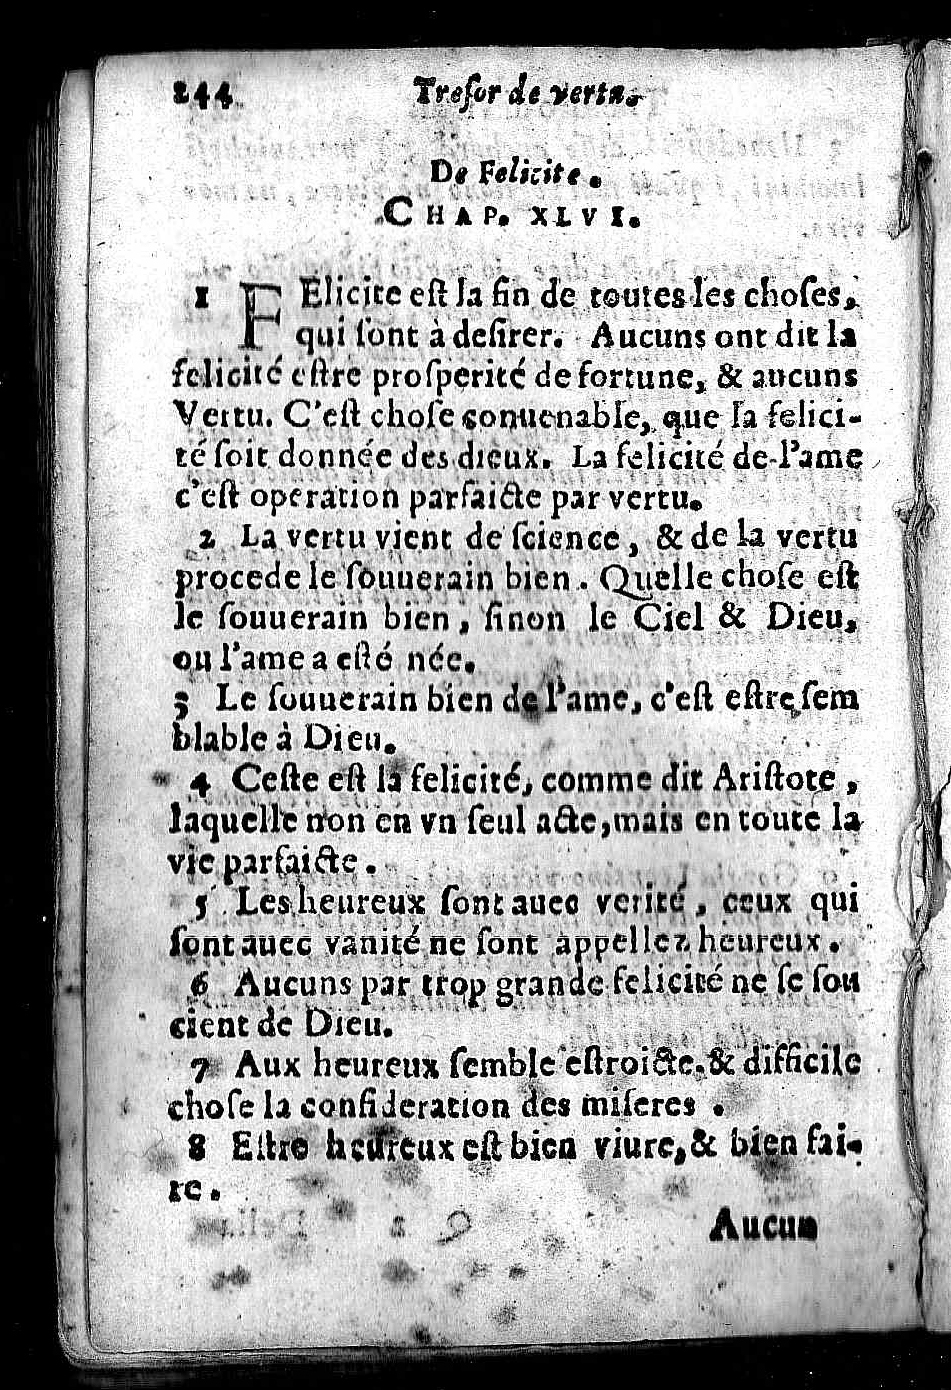 244 Treſor de vertu.
De Felicite.
CHAP. XLVI.
1 FElicite eſt la fin de toutes les choſes,
qui ſont à deſirer. Aucuns ont dit la
felicité eſtre proſperité de fortune, & aucuns
Vertu. C'eſt choſe conuenable, que la felici-
té ſoit donnée des dieux. La felicité de l'ame
c'eſt operation parfaicte par vertu.
2 La vertu vient de ſcience, & de la vertu
procede le ſouuerain bien. Quelle choſe eſt
le ſouuerain bien, ſinon le Ciel & Dieu,
ou l'ame a eſté née.
3 Le ſouuerain bien de l'ame, c'eſt eſtre ſem
blable à Dieu.
4 Ceſte eſt la felicité, comme dit Ariſtote,
laquelle non en vn ſeul acte, mais en toute la
vie parfaicte.
5 Les heureux ſont auec verité, ceux qui
ſont auec vanité ne ſont appellez heureux.
6 Aucuns par trop grande felicité ne ſe ſou
cient de Dieu.
7 Aux heureux ſemble eſtroicte & difficile
choſe la conſideration des miſeres.
8 Eſtre heureux eſt bien viure, & bien fai-
re.
Aucun